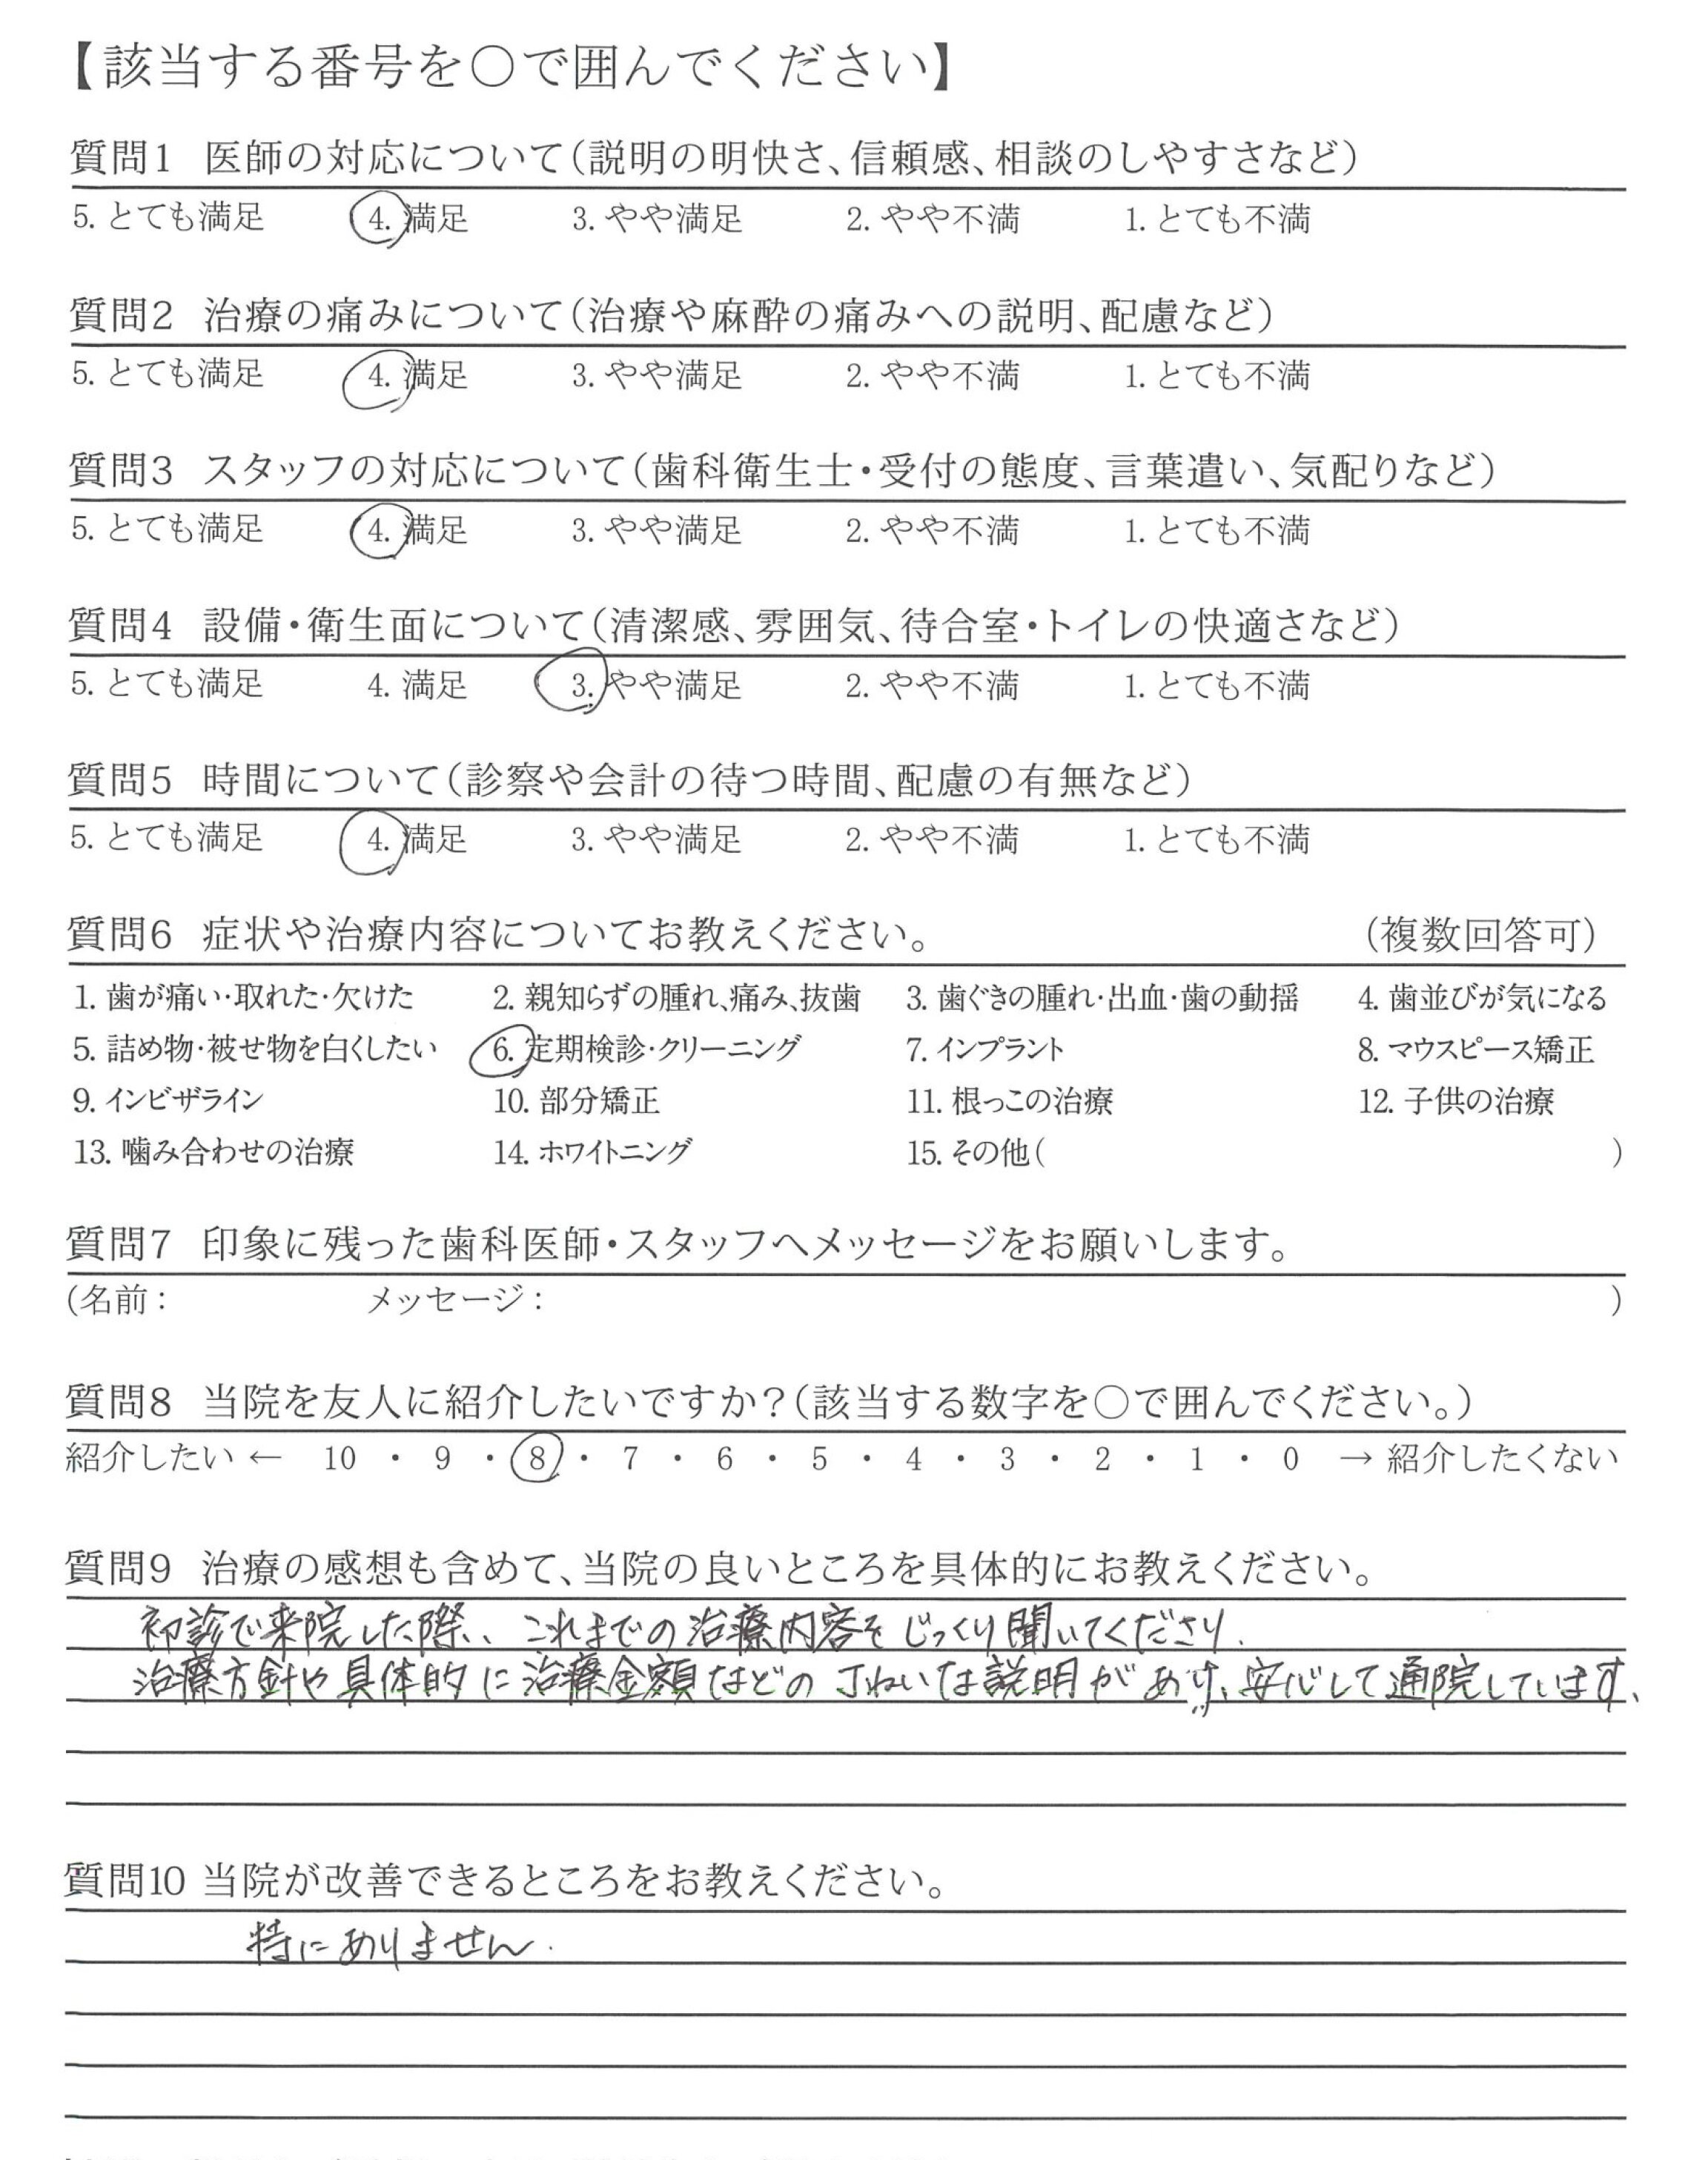 【該当する番号を○で囲んでください】
質問1 医師の対応について(説明の明快さ、信頼感、相談のしやすさなど)
5. とても満足 4. 満足 3. やや満足 2. やや不満 1. とても不満
質問2 治療の痛みについて(治療や麻酔の痛みへの説明、配慮など)
5. とても満足 4. 満足 3. やや満足 2. やや不満 1. とても不満
質問3 スタッフの対応について(歯科衛生士・受付の態度、言葉遣い、気配りなど)
5. とても満足 4. 満足 3. やや満足 2. やや不満 1. とても不満
質問4 設備・衛生面について(清潔感、雰囲気、待合室・トイレの快適さなど)
5. とても満足 4. 満足 3. やや満足 2. やや不満 1. とても不満
質問5 時間について(診察や会計の待つ時間、配慮の有無など)
5. とても満足 4. 満足 3. やや満足 2. やや不満 1. とても不満
質問6 症状や治療内容についてお教えください。 (複数回答可)
1. 歯が痛い・取れた・欠けた 2. 親知らずの腫れ、痛み、抜歯 3. 歯ぐきの腫れ・出血・歯の動揺 4. 歯並びが気になる
5. 詰め物・被せ物を白くしたい 6. 定期検診・クリーニング 7. インプラント 8. マウスピース矯正
9. インビザライン 10. 部分矯正 11. 根っこの治療 12. 子供の治療
13. 噛み合わせの治療 14. ホワイトニング 15. その他( )
質問7 印象に残った歯科医師・スタッフへメッセージをお願いします。
(名前: メッセージ: )
質問8 当院を友人に紹介したいですか?(該当する数字を○で囲んでください。)
紹介したい ← 10 ・ 9 ・ 8 ・ 7 ・ 6 ・ 5 ・ 4 ・ 3 ・ 2 ・ 1 ・ 0 → 紹介したくない
質問9 治療の感想も含めて、当院の良いところを具体的にお教えください。
初診で来院した際、これまでの治療内容をじっくり聞いてくださり、
治療方針や具体的に治療金額などの丁ねいな説明があり、安心して通院しています、
質問10 当院が改善できるところをお教えください。
特にありません.